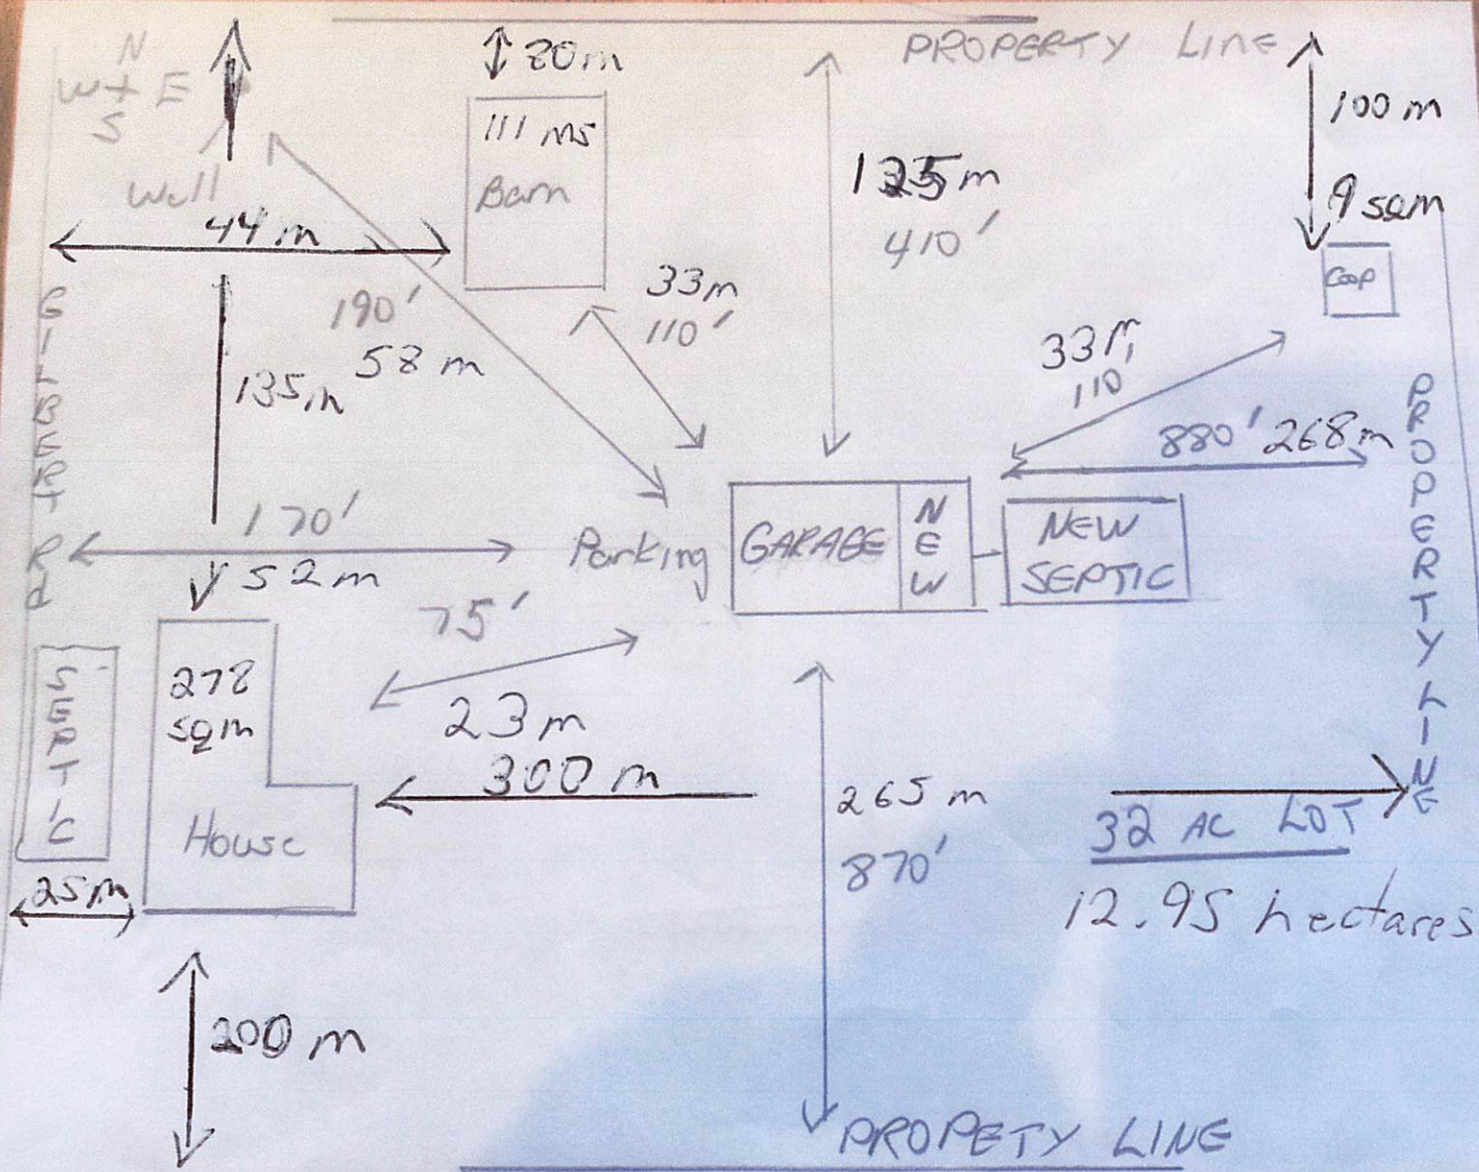 N
W + E
S
Well
PROPERTY LINE
20m
111 ms
Barn
125m
410'
100 m
9 sqm
Coop
44 m
190'
58 m
135m
33m
110'
33m
110'
880' 268m
GILBERT Rd
170'
52m
Parking
GARAGE
NEW
NEW
SEPTIC
PROPERTY LINE
75'
23m
SEPTIC
278
sqm
House
300 m
265 m
870'
32 AC LOT
12.95 hectares
25m
200 m
PROPETY LINE